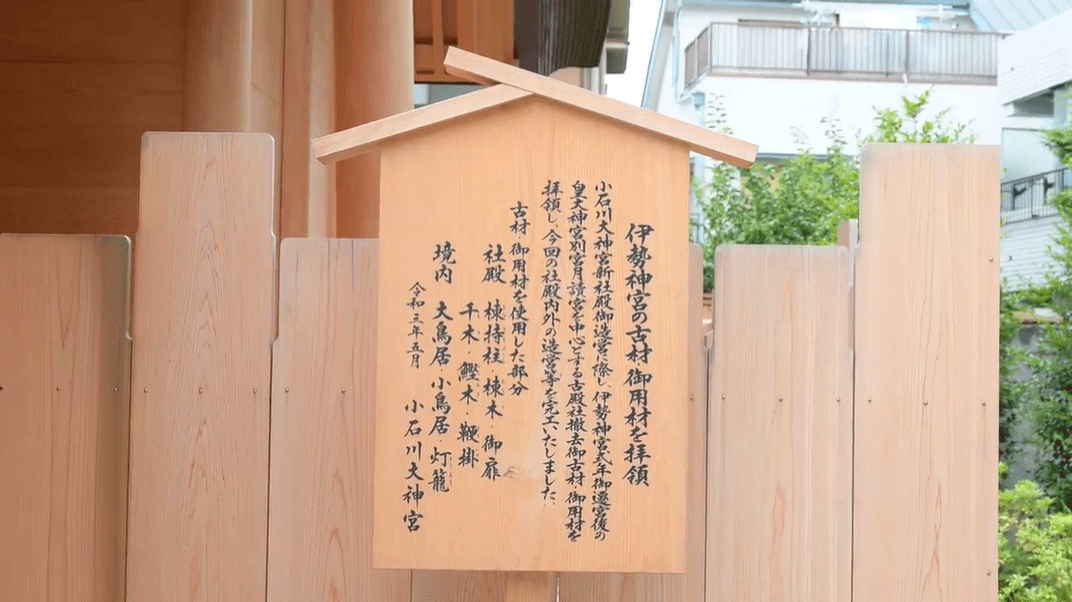 伊勢神宮の古材・御用材を拝領
小石川大神宮新社殿御造営に際し、伊勢神宮式年御遷宮後の
皇大神宮別宮月讀宮を中心とする古殿社撤去御古材・御用材を
拝領し、今回の社殿内外の造営等を完工いたしました。
古材・御用材を使用した部分
社殿 棟持柱・棟木・御扉
千木・鰹木・鞭掛
境内 大鳥居・小鳥居・灯籠
令和三年五月 小石川大神宮